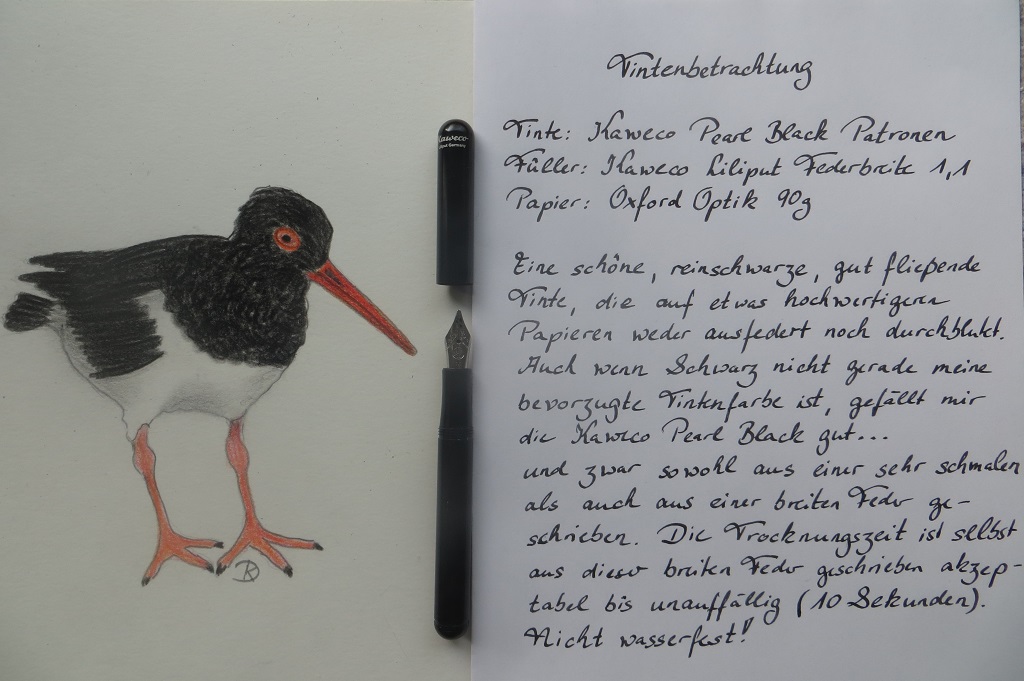 Tintenbetrachtung
Tinte: Kaweco Pearl Black Patronen
Füller: Kaweco Liliput Federbreite 1,1
Papier: Oxford Optik 90g
Eine schöne, reinschwarze, gut fließende
Tinte, die auf etwas hochwertigeren
Papieren weder ausfedert noch durchblutet.
Auch wenn Schwarz nicht gerade meine
bevorzugte Tintenfarbe ist, gefällt mir
die Kaweco Pearl Black gut...
und zwar sowohl aus einer sehr schmalen
als auch aus einer breiten Feder ge-
schrieben. Die Trocknungszeit ist selbst
aus dieser breiten Feder geschrieben akzep-
tabel bis unauffällig (10 Sekunden).
Nicht wasserfest!
Kaweco